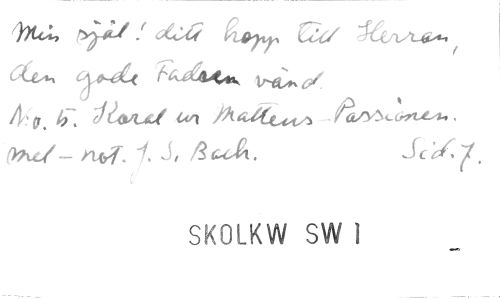 Min själ! ditt hopp till Herran,
den gode Fadren vänd.
No. 5. Koral ur Matteus-Passionen.
mel-not. J. S. Bach. Sid. 7.
SKOLKW SW 1